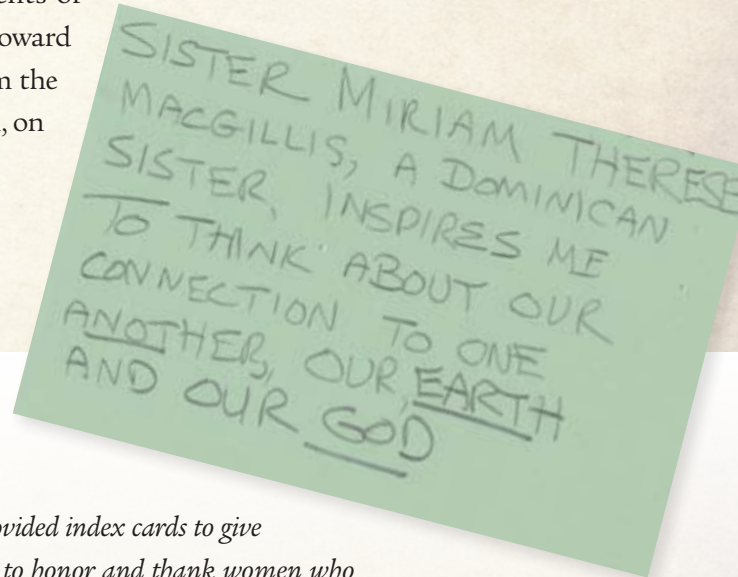 oward
the
, on
SISTER MIRIAM THERESE
MACGILLIS, A DOMINICAN
SISTER, INSPIRES ME
TO THINK ABOUT OUR
CONNECTION TO ONE
ANOTHER, OUR EARTH
AND OUR GOD
ovided index cards to give
to honor and thank women who